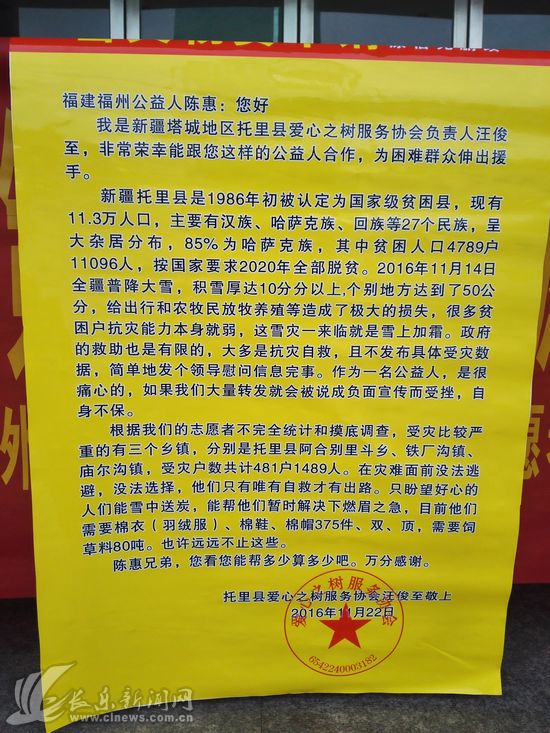 福建福州公益人陈惠：您好
我是新疆塔城地区托里县爱心之树服务协会负责人汪俊
至，非常荣幸能跟您这样的公益人合作，为困难群众伸出援
手。
新疆托里县是1986年初被认定为国家级贫困县，现有
11.3万人口，主要有汉族、哈萨克族、回族等27个民族，呈
大杂居分布，85%为哈萨克族，其中贫困人口4789户
11096人，按国家要求2020年全部脱贫。2016年11月14日
全疆普降大雪，积雪厚达10分分以上,个别地方达到了50公
分，给出行和农牧民放牧养殖等造成了极大的损失，很多贫
困户抗灾能力本身就弱，这雪灾一来临就是雪上加霜。政府
的救助也是有限的，大多是抗灾自救，且不发布具体受灾数
据，简单地发个领导慰问信息完事。作为一名公益人，是很
痛心的，如果我们大量转发就会被说成负面宣传而受挫，自
身不保。
根据我们的志愿者不完全统计和摸底调查，受灾比较严
重的有三个乡镇，分别是托里县阿合别里斗乡、铁厂沟镇、
庙尔沟镇，受灾户数共计481户1489人。在灾难面前没法逃
避，没法选择，他们只有唯有自救才有出路。只盼望好心的
人们能雪中送炭，能帮他们暂时解决下燃眉之急，目前他们
需要棉衣（羽绒服）、棉鞋、棉帽375件、双、顶，需要饲
草料80吨。也许远远不止这些。
陈惠兄弟，您看您能帮多少算多少吧。万分感谢。
托里县爱心之树服务协会汪俊至敬上
2016年11月22日
爱心之树服务协会
6542240003182
长乐新闻网
www.clnews.com.cn